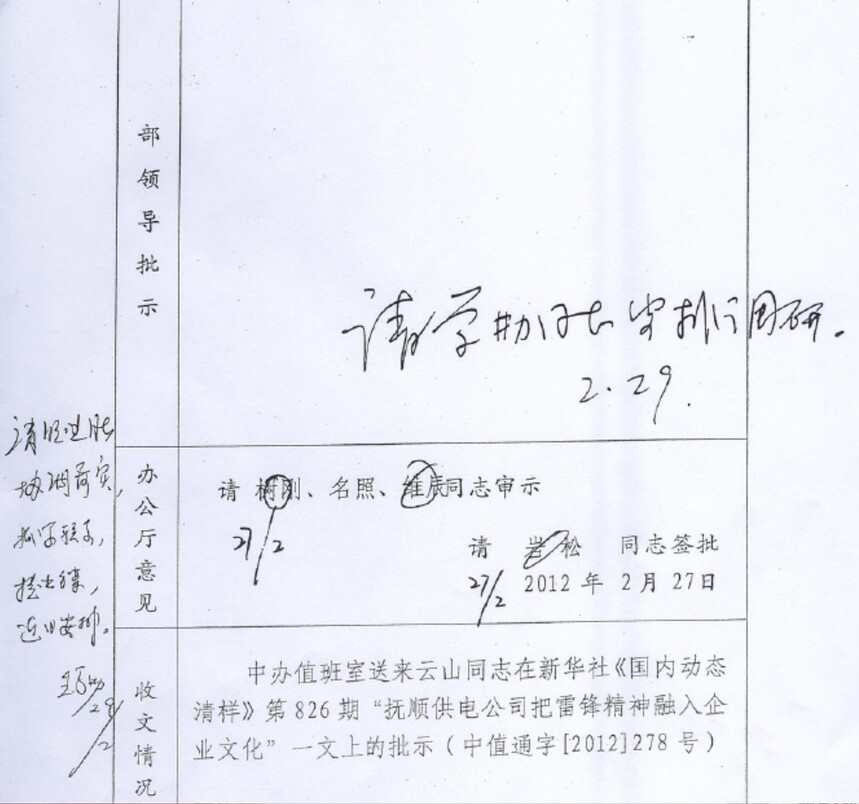 部领导批示
请学办同志安排调研。
2.29.
办公厅意见
请 树刚、名照、维庆同志审示
27/2
请 岩松 同志签批
27/2 2012年2月27日
落实,
近日安排。
29/2
收文情况
中办值班室送来云山同志在新华社《国内动态
清样》第826期“抚顺供电公司把雷锋精神融入企
业文化”一文上的批示(中值通字[2012]278号)